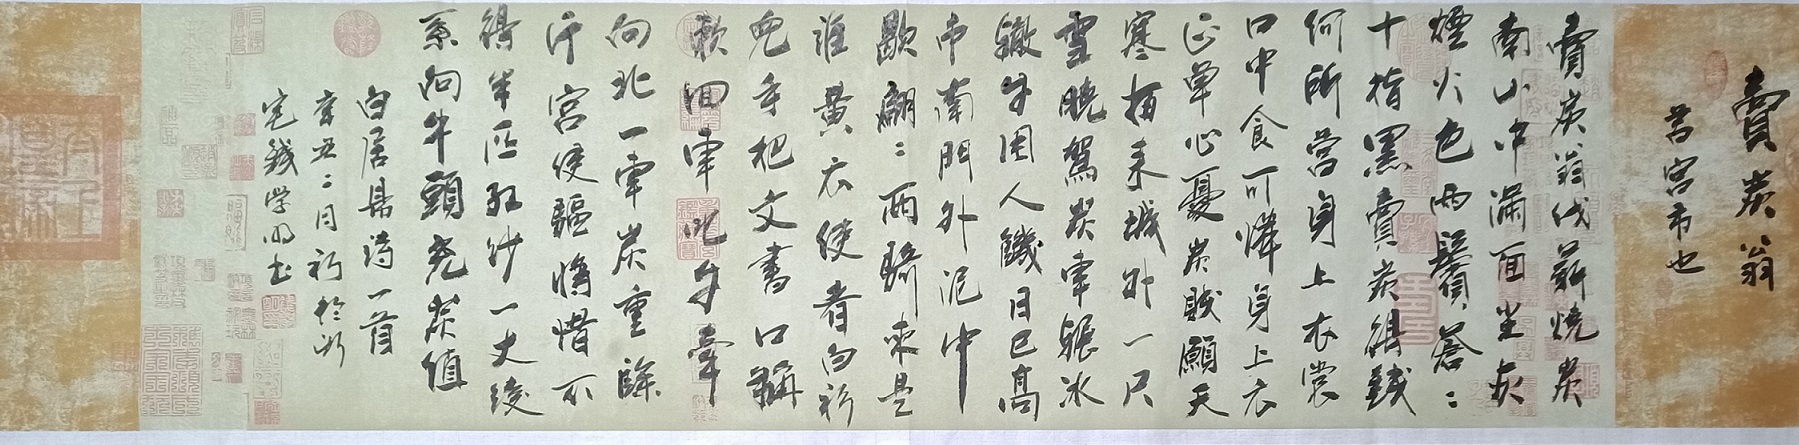 賣炭翁
苦宮市也
賣炭翁伐薪燒炭
南山中滿面塵灰
煙火色兩鬢蒼々
十指黑賣炭得錢
何所營身上衣裳
口中食可憐身上衣
正單心憂炭賤願天
寒夜来城外一尺
雪曉駕炭車輾冰
轍牛困人饑日已高
市南門外泥中
歇翩々兩騎來是
誰黃衣使者白衫
兒手把文書口稱
敕迴車叱牛牽
向北一車炭重餘
斤宮使驅將惜不
得半匹紅紗一丈綾
系向牛頭充炭值
白居易詩一首
辛丑二月初於浙
宅錢学明书